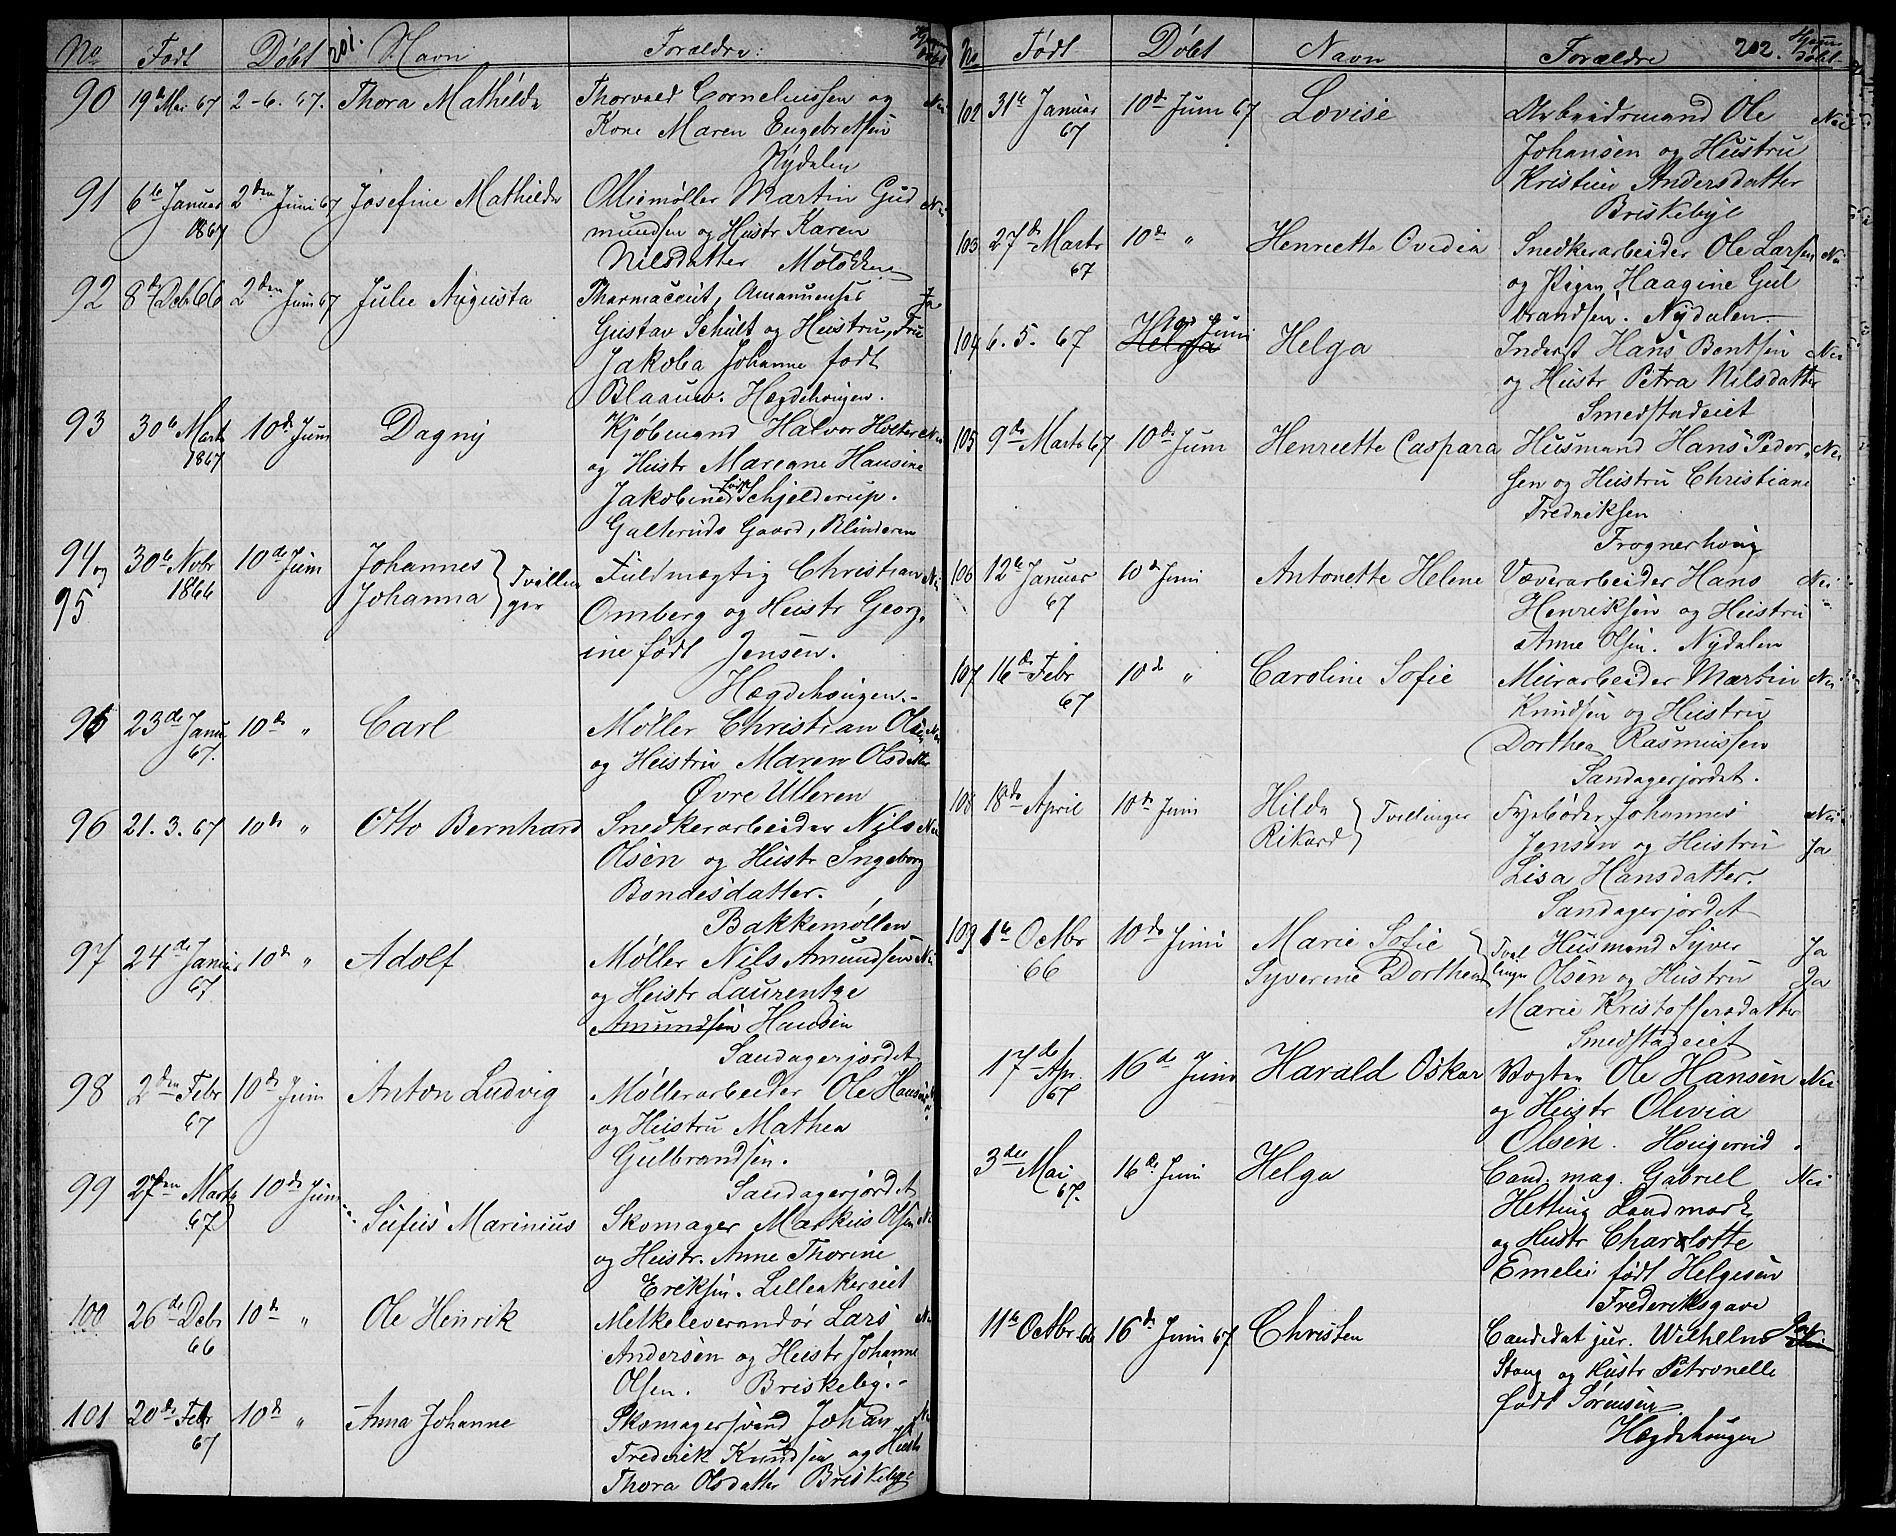 No Født Døbt 201. Navn Forældre: Hjemdøbt
90 19de Mai 67 2-6. 67. Thora Mathilde Thorvald Corneliussen og Nei
Kone Maren Engebretsen
Nydalen
91 6te Januar 2den Juni 67 Josefine Mathilde Oliemøller Martin Gud Nei
1867 mundsen og Hustr Karen
Nilsdatter
92 8de Deb 66 2den Juni 67 Julie Augusta Pharmaceut, Amanuenses Ja
Gustav Schült og Hustru, Fru
Jakoba Johanne født
Blaauw. Hægdehougen.
93 30te Marts 10de Juni Dagny Kjøbmand Halvor Holter Nei
1867 og Hustr Mareane Hansine
Jakobine født Schjelderup.
Galteruds Gaard, Blinderen
94 og 30te Nobr 10de Juni Johannes Tvillin Fuldmægtig Christian Nei
95 1866 Johanna ger Omberg og Hustr Georg,
ine født Jensen.
Hægdehougen.-
95 23de Janu 10de " Carl Møller Christian Olsen Nei
67. og Hustru Maren Olsdatter
Øvre Ulleren
96 21. 3. 67 10de " Otto Bernhard Snedkerarbeider Nils Nei
Olsen og Hustr Ingeborg
Bondesdatter.
Bakkemøllen
97 24de Januar 10de " Adolf Møller Nils Amundsen Nei
67. og Hustr Laurentze
Amundsen Hansen
Sandagerjordet
98 2den Febr 10de Juni Anton Ludvig Møllerarbeider Ole Hansen
67 og Hustru Mathea
Gulbrandsen.
Sandagerjordet
99 27den Marts 10de Juni
67 Sufus Marinius Skomager Markus Olsen Nei
og Hustr. Anne Thorine
Ereksen. Lilleakereiet
100 26de Debr 10de " Ole Henrik Melkeleverandør Lars Nei
66 Andersen og Hustr Johanne
Olsen. Briskeby.-
101 20de Febr 10de " Anna Johanne Skomagersvend Johan Nei
67 Frederik Knudsen og Hustr
Thora Olsdatter Briskebye
No Født Døbt Navn Forældre 202. Hjemdøbt
102 31te Januar 10de Juni 67 Lovise Arbeidsmand Ole Nei
67 Johansen og Hustru
Kristine Andersdatter
Briskebye
103 27de Marts 10de " Henriette Ovedia Snedkerarbeider Ole Larsen Nei
67 og Pigen Haagine Gul
brandsen. Nydalen
104 6. 5. 67 Helga 10de Juni Helga Inderst Hans Bentsen Nei
og Hustr Petra Nilsdatter
Smedstadeiet
105 9de Marts 67 10de Juni Henriette Caspara Husmand Hans Peder, Nei
sen og Hustru Christiane
Fredriksen
Frognerhoug
106 12te Januar 10de Juni Antonette Helene Væverarbeider Hans Nei
67 Henriksen og Hustru
Anne Olsen. Nydalen
107 16de Febr 10de " Caroline Sofie Murarbeider Martin Nei
67 Knudsen og Hustru
Dorthea Rasmussen
Sandagerjordet.
108 18de April 10de Juni Hilda Tvillinger Fyrbøder Johannes Nei
Rikard Jensen og Hustru Ja
Lisa Hansdatter.
Sandagerjordet
109 1te Octbr 10de Juni Marie Sofie Tvil Husmand Syver Ja
66 Syverine Dorthea linger Olsen og Hustru Ja
Marie Kristoffersdatter
Smedstadeiet
17de Ap. 16de Juni Harald Oskar Vogter Ole Hansen Nei
67 og Hustr Olivia
Olsen. Hougerud
3die Mai 16de Juni Helga Cand. mag. Gabriel Nei
67. Hetting Landmark
og Hustr Charlotte
Emelie født Helgesen
Frederiksgave
11te Octbr 66 16de Juni 67 Christen Candidat jur. Wilhelm Ja
Stang og Hustr Petronelle
født Sørensen
Hægdehougen